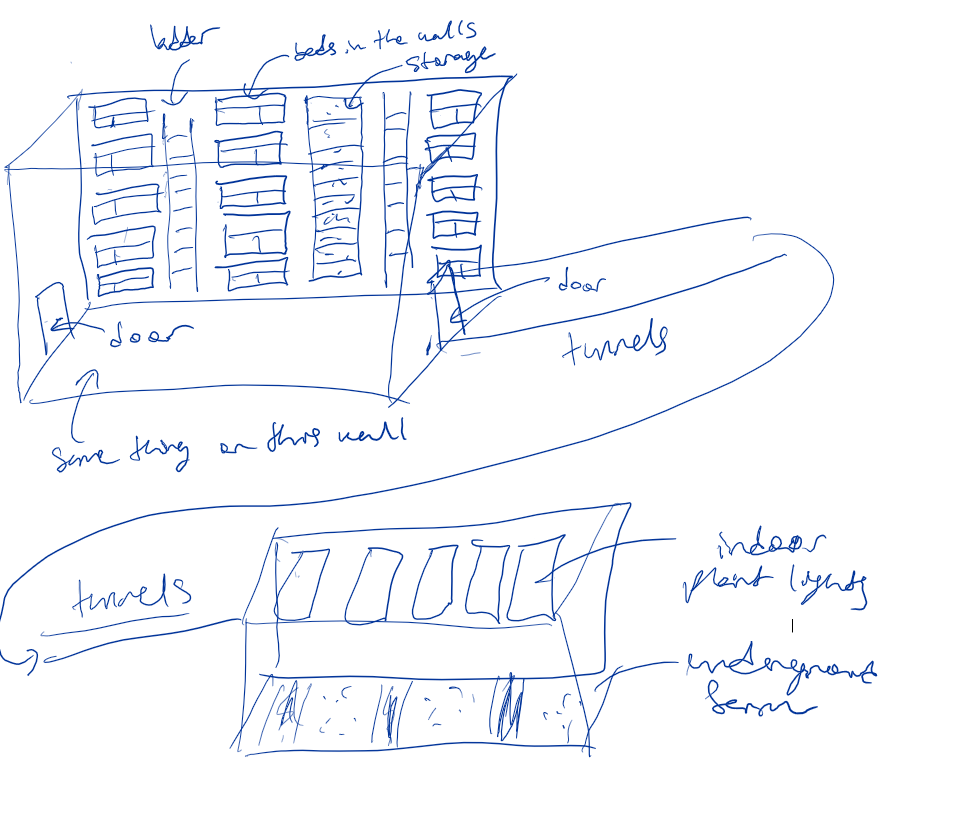 ladder
beds in the walls
storage
door
door
tunnels
same thing on this wall
tunnels
indoor
plant lights
underground